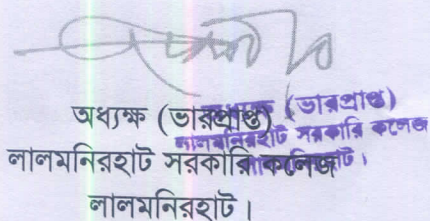 অধ্যক্ষ (ভারপ্রাপ্ত)
লালমনিরহাট সরকারি কলেজ
লালমনিরহাট।
(ভারপ্রাপ্ত)
লালমনিরহাট সরকারি কলেজ